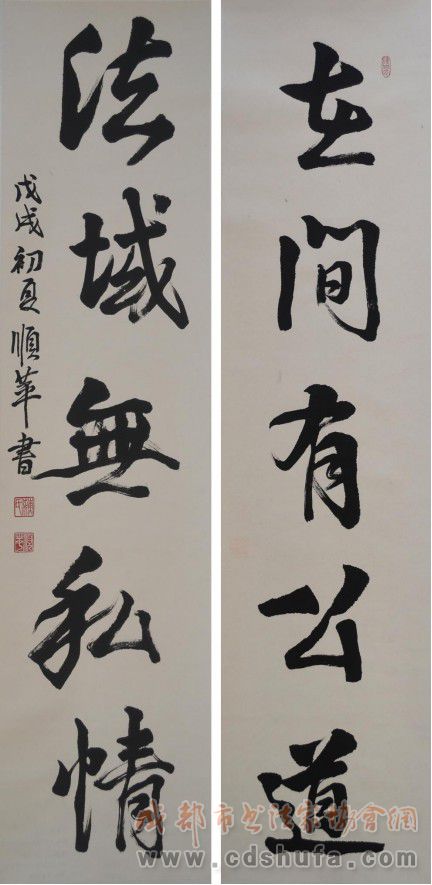 世間有公道
法域無私情
戊戌初夏順華書
成都市书法家协會網
www.cdshufa.com